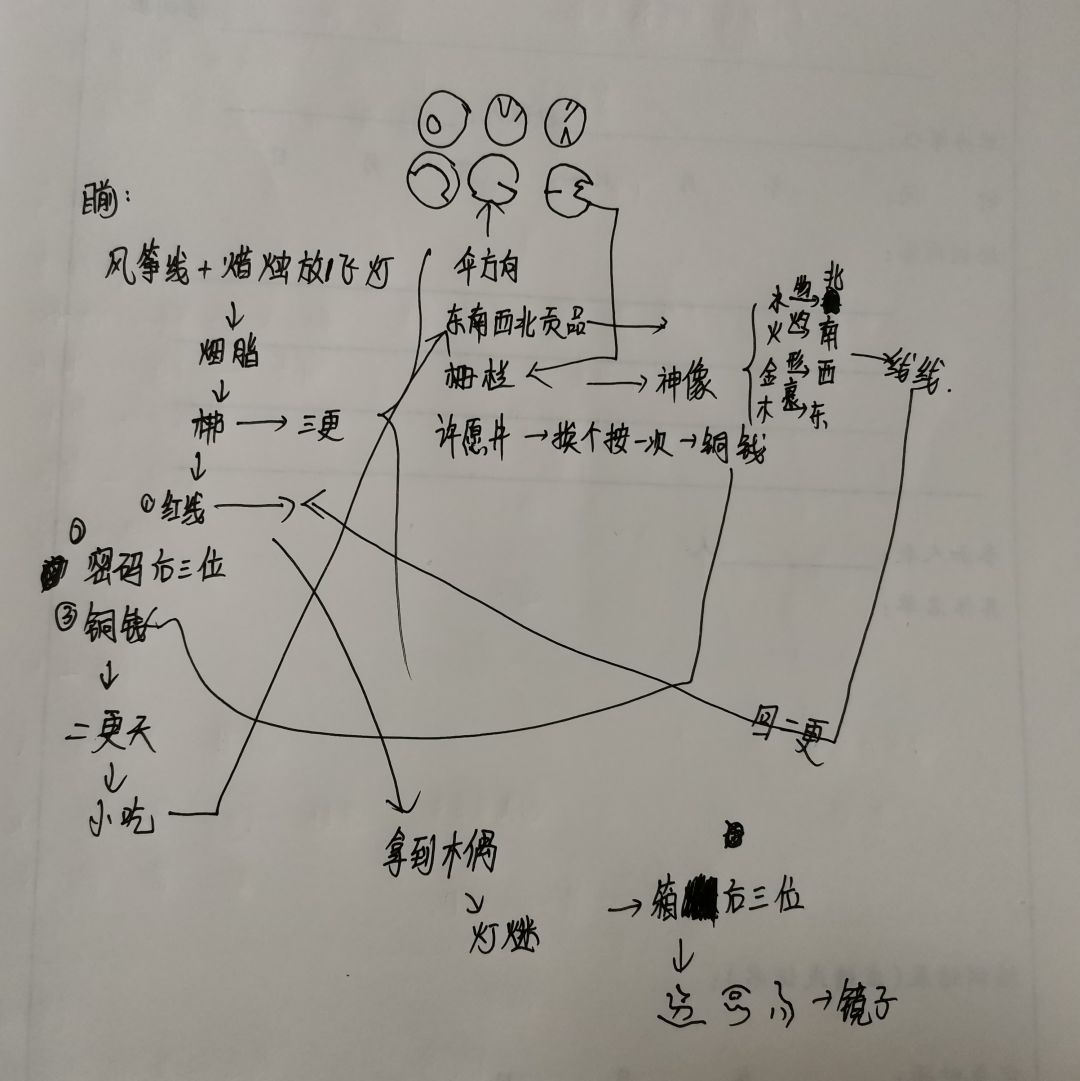 目前：
风筝线+蜡烛放飞灯
胭脂
梯→三更
①红线
②
密码后三位
③铜钱
二更天
小吃
伞方向
东南西北贡品
栅栏
→神像
许愿井→挨个按一次→铜钱
水→北
火→南
金→西
木→东
→线线.
回二更
拿到木偶
灯燃
→箱后三位
→镜子